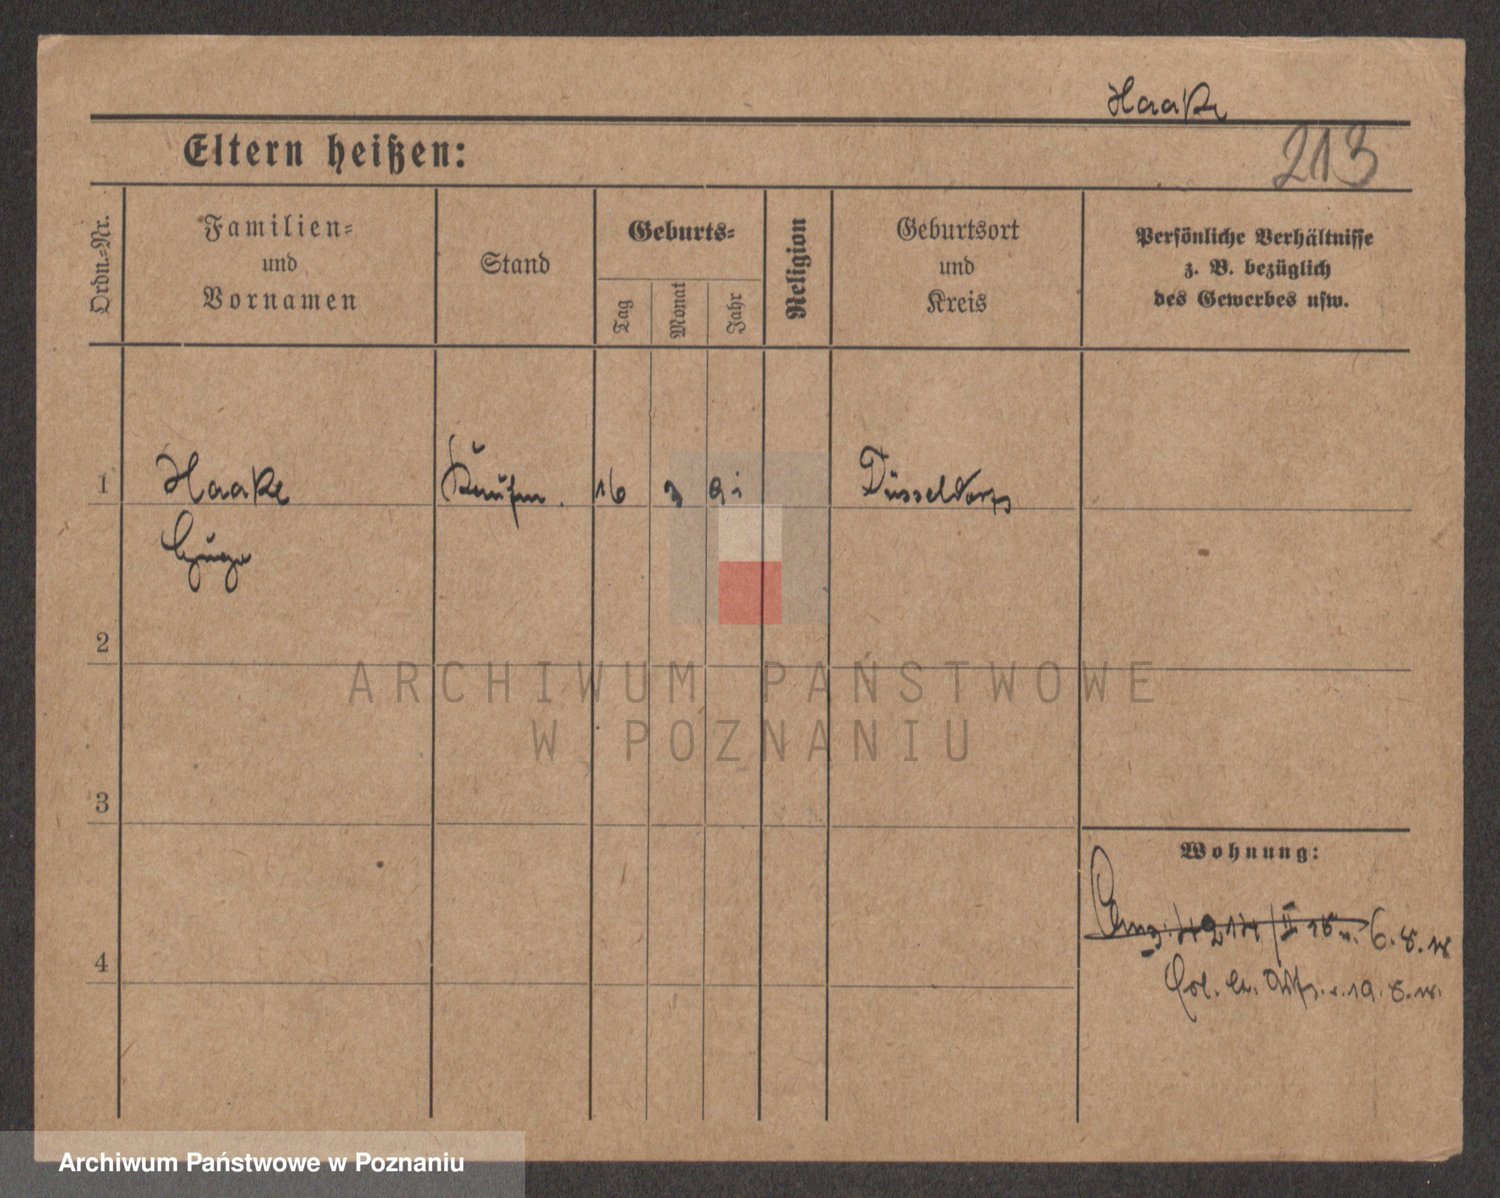 Haake
213
Eltern heißen:
Ordn.-Nr.
Familien-
und
Vornamen
Stand
Geburts-
Tag
Monat
Jahr
Religion
Geburtsort
und
Kreis
Persönliche Verhältnisse
z. B. bezüglich
des Gewerbes usw.
1 Haake Kaufm. 16 3 91 Düsseldorf
Hugo
2
3
4
Wohnung:
6.8.18
19.8.18.
ARCHIWUM PAŃSTWOWE
W POZNANIU
Archiwum Państwowe w Poznaniu